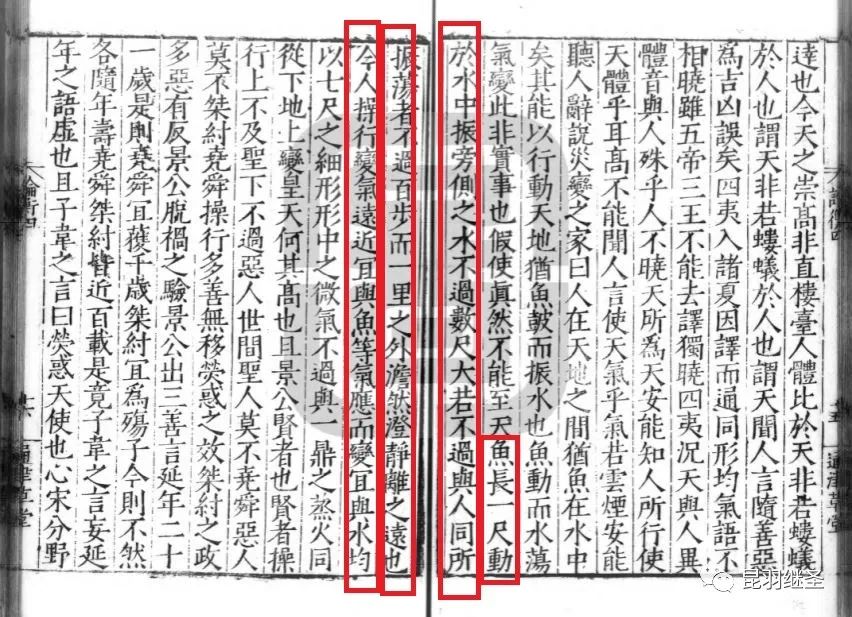 論衡四
十五
通津草堂
達也今天之崇高非直樓臺人體比於天非若螻蟻
於人也謂天非若螻蟻於人也謂天聞人言隨善惡
為吉凶誤矣四夷入諸夏因譯而通同形均氣語不
相曉雖五帝三王不能去譯獨曉四夷況天與人異
體音與人殊乎人不曉天所為天安能知人所行使
天體乎耳高不能聞人言使天氣乎氣若雲煙安能
聽人辭說災變之家曰人在天地之間猶魚在水中
矣其能以行動天地猶魚鼓而振水也魚動而水蕩
氣變此非實事也假使真然不能至天魚長一尺動
於水中振旁側之水不過數尺大若不過與人同所
振蕩者不過百步而一里之外澹然澄靜離之遠也
今人操行變氣遠近宜與魚等氣應而變宜與水均
以七尺之細形形中之微氣不過與一鼎之蒸火同
從下地上變皇天何其高也且景公賢者也賢者操
行上不及聖下不過惡人世間聖人莫不堯舜惡人
莫不桀紂堯舜操行多善無移熒惑之效桀紂之政
多惡有反景公脫禍之驗景公出三善言延年二十
一歲是則堯舜宜獲千歲桀紂宜為殤子今則不然
各隨年壽堯舜桀紂皆近百載是竟子韋之言妄延
年之語虛也且子韋之言曰熒惑天使也心宋分野
論衡四
十六
通津草堂
昆羽继圣